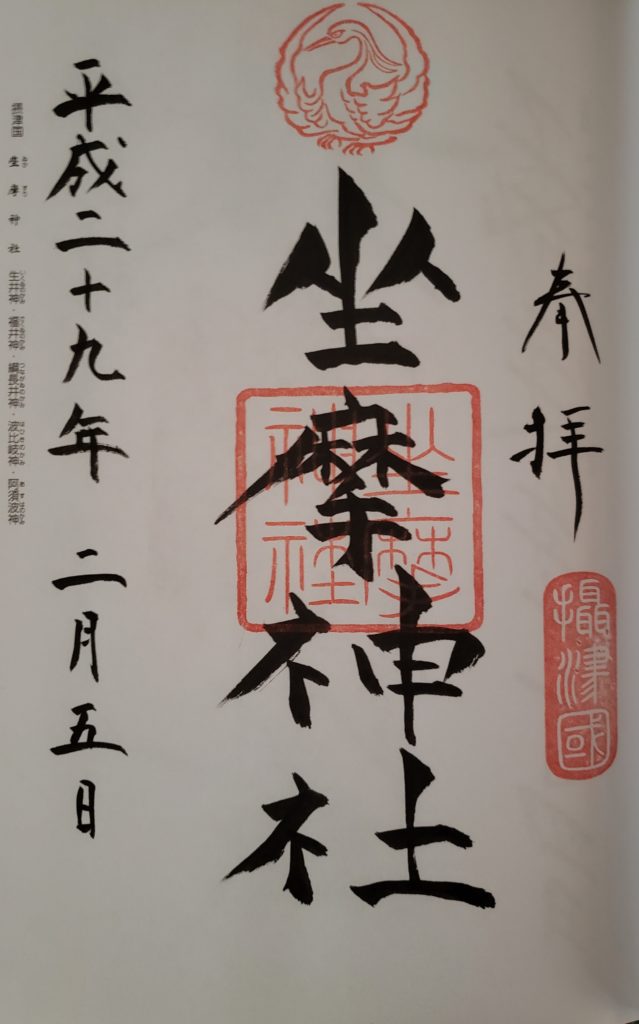 奉拝
攝津國
坐摩神社
坐摩
神社
平成二十九年 二月五日
摂津国 坐摩神社 生井神・福井神・綱長井神・波比岐神・阿須波神